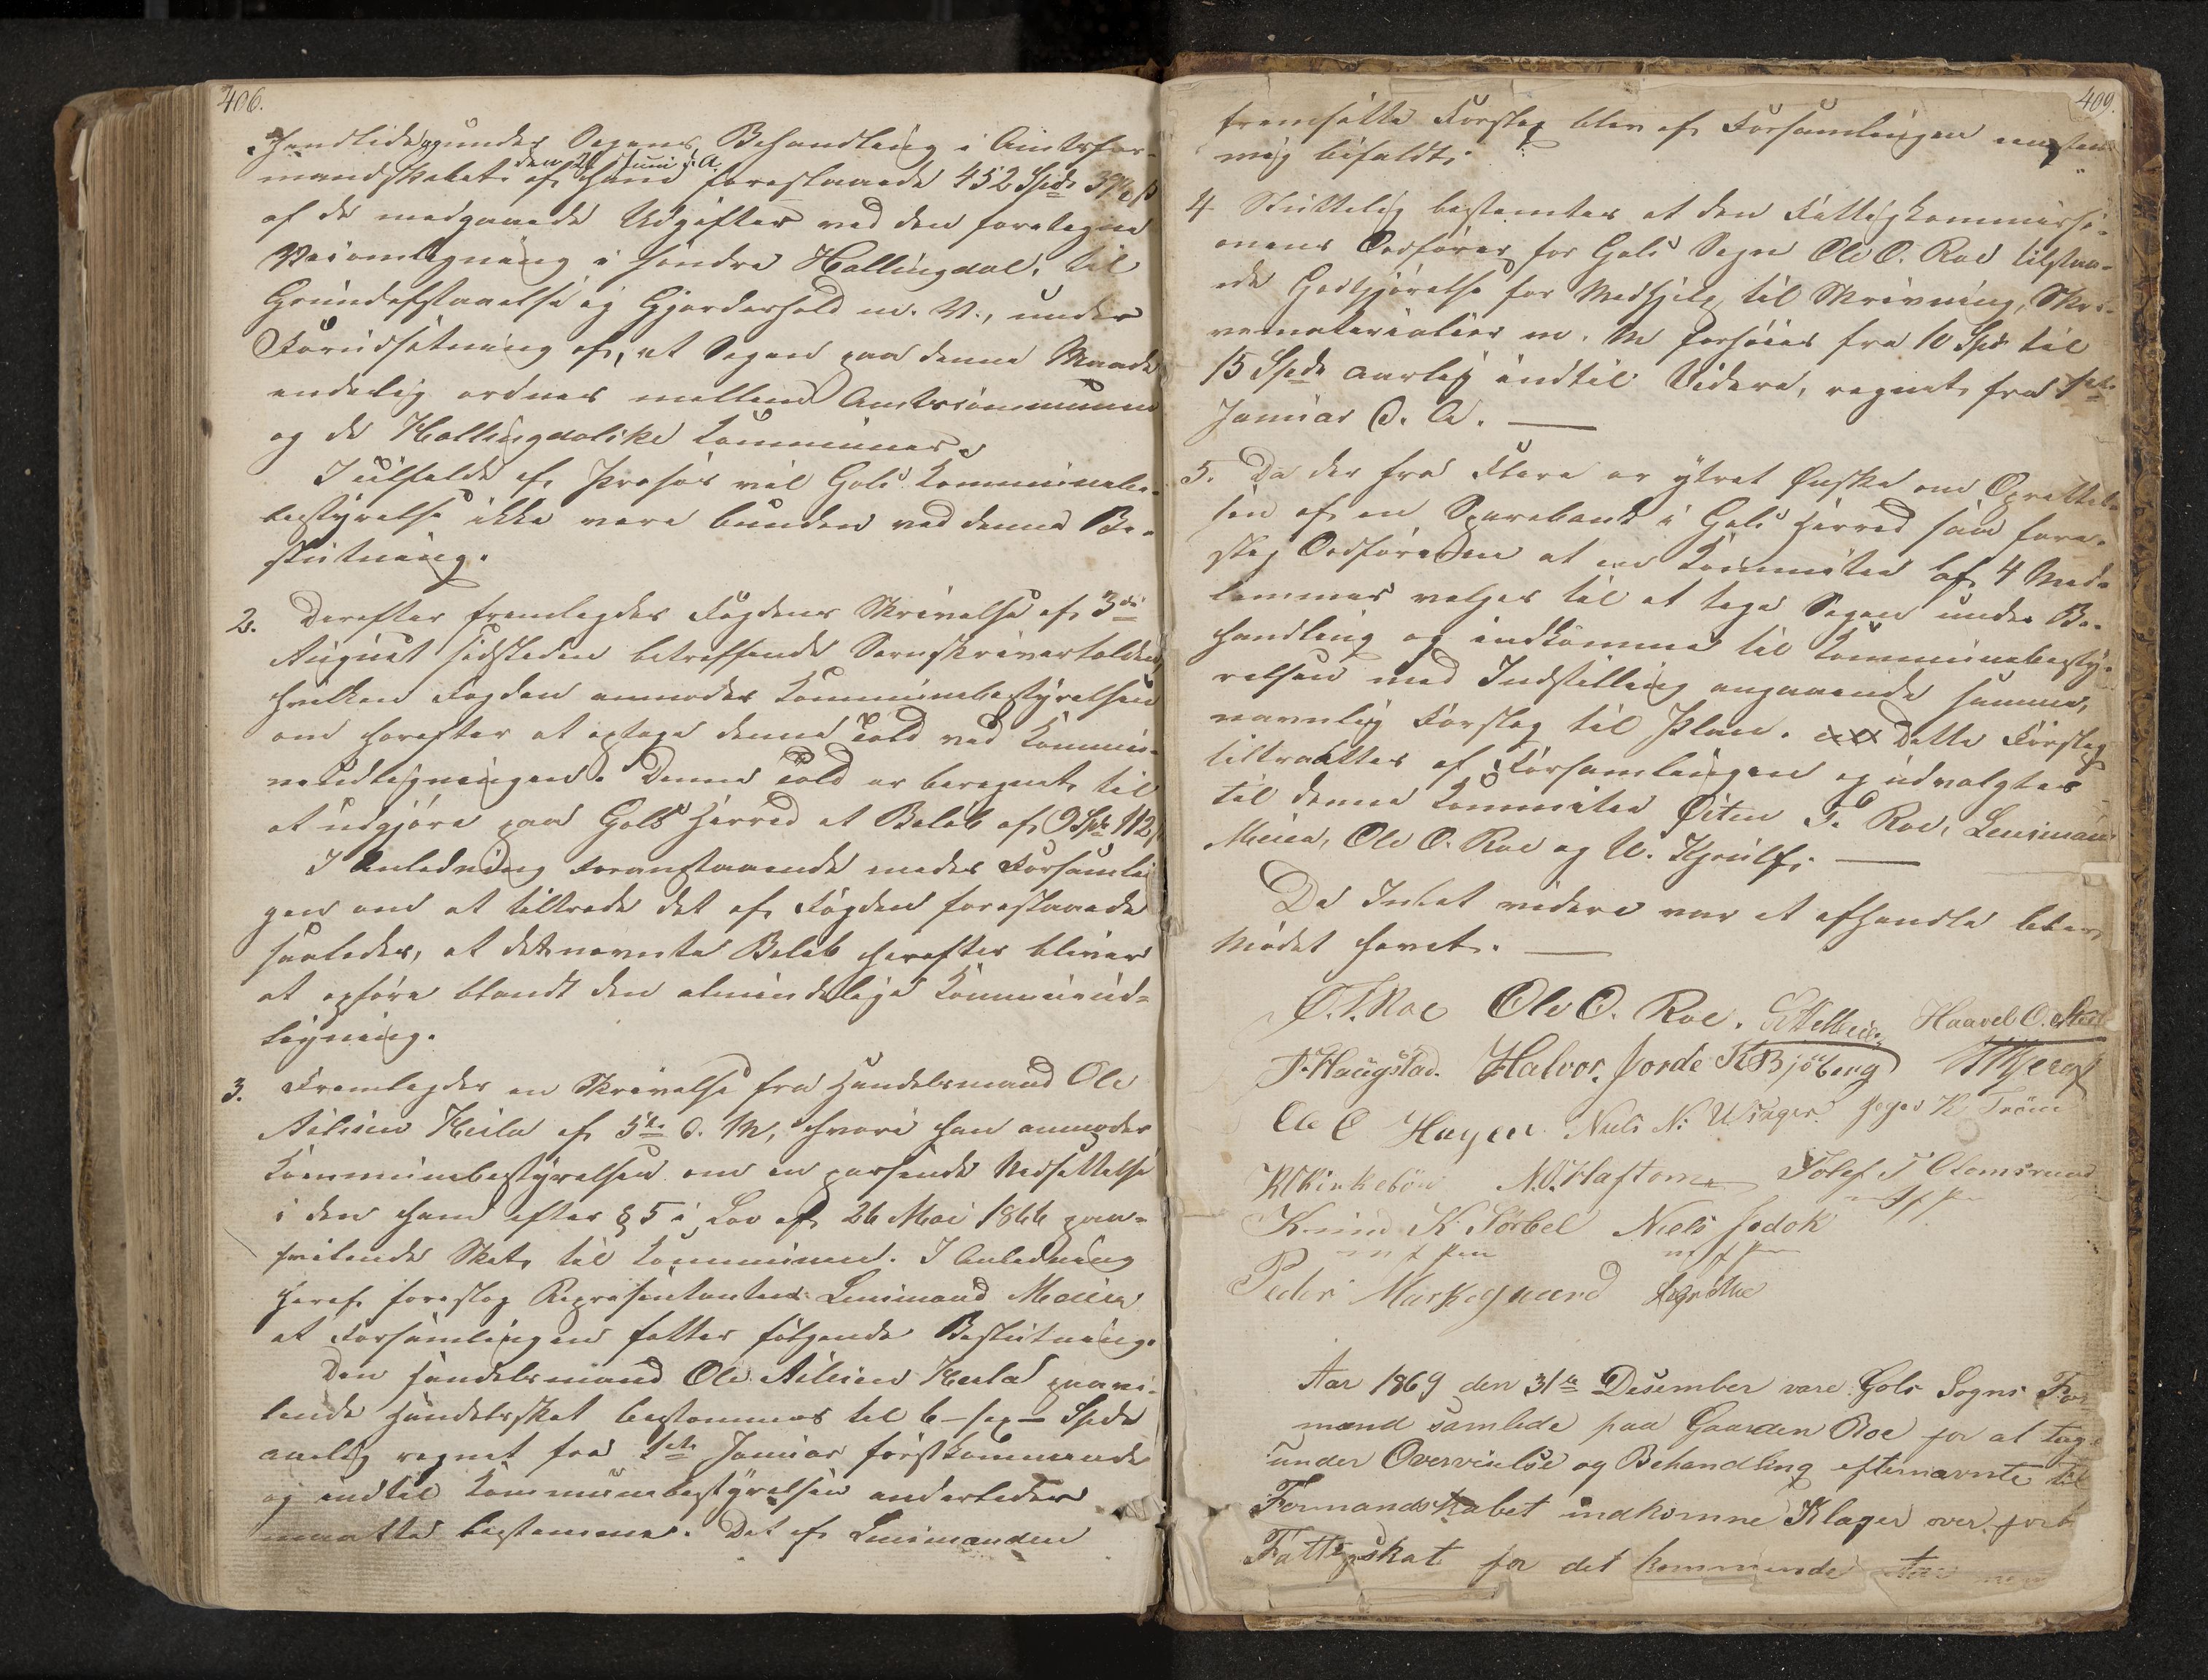 406.
Hendlideg under Sagens Behandling i Amtsfor-
den 26 Juni d. A.
mandskabet af Ham foreslaaede 452 Spd.
af de medgaaede Udgifter ved den foretagne
Veiomlægning i søndre Hallingdal, til
Grundafstaaelse og Gjærdehold m. V., under
Forudsætning af, at Sagen paa denne Maade
endelig ordnes mellem Amtscommunen
og de Hallingdalske Kommuner.
I tilfælde af Proces vil Gols Kommune-
bestyrelse ikke være bunden ved denne Be-
slutning.
2. Derefter fremlagdes Fogdens Skrivelse af 3die
August sidstleden betræffende Sorenskrivertolden
hvilken Fogden anmoder Kommunebestyrelsen
om herefter at optage denne Told ved Kommu-
neudligningen. Denne Told er beregnet til
at udgjøre paa Gols Herred et Beløb af 9 Spd. 112
I Anledning foranstaaende enedes Forsamlin
gen om at tiltræde det af Fogden foreslaaede
saaledes, at det nævnte Beløb herefter bliver
at opføre blandt den almindelige Kommuneud-
ligning.
3. Fremlagdes en Skrivelse fra Handelsmand Ole
Asleson Heslo af 5te d. M, hvori han anmoder
Kommunebestyrelsen om en passende Nedsættelse
i den ham efter § 5 i Lov af 26 Mai 1866 paa-
hvilende Skat til Kommunen. I Anledning
heraf foreslog Repræsentanten Lensmand Meier
at Forsamlingen fatter følgende Beslutning.
Den Handelsmand Ole Asleson Heslo paahvi-
lende Handelsskat bestemmes til 6 – sex – Spd
aarlig regnet fra 1ste Januar førstkommende
og indtil Kommunebestyrelsen anderledes
maatte bestemme. Det af Lensmanden
409.
fremsatte Forslag blev af Forsamlingen eenstem-
mig bifaldt.
4 Sluttelig bestemtes at den Fattigkommissi-
onens Ordfører for Gols Sogn Ole O. Roe tilstaa-
ede Godtgjørelse for Medhjelp til Skrivning, Skri-
vematerialier m. M forhøies fra 10 Spd til
15 Spd aarlig indtil Videre, regnet fra 1ste
Januar d. A.
5. Da der fra Flere er ytret Ønske om Oprettel-
sen af en Sparebank i Gols Herred saa fore-
slog Ordføreren at en Kommitee af 4 Med-
lemmer vælges til at tage Sagen under Be-
handling og indkomme til Kommunebesty-
relsen med Indstilling angaaende samme,
navnlig Forslag til Plan. Dette Forslag
tiltraadtes af Forsamlingen og udvalgtes
til denne Kommitee Østen T. Roe, Lensmand
Meier, Ole O. Roe og U. Kjrulf.
Da Intet videre var at afhandle blev
Mødet hævet.
Ø.T. Roe Ole O. Roe. Haavel O.
T. Haugstad. Halvor Jorde K Bjøberg
Ole O Hagen Niels N. Ulsager
K Kirkebøn N.O. Haftorn Tolef T Olomsrund
Knud K. Sørbel Niels Jodok
m f Pen
Peder Markegaard
Aar 1869 den 31te Desember vare Gols Sogns For
mænd samlede paa Gaarden Roe for at tage
under Overveielse og Behandling efternævnte til
Formandskabet indkomne Klager over
Fattigskat for det kommende Aar